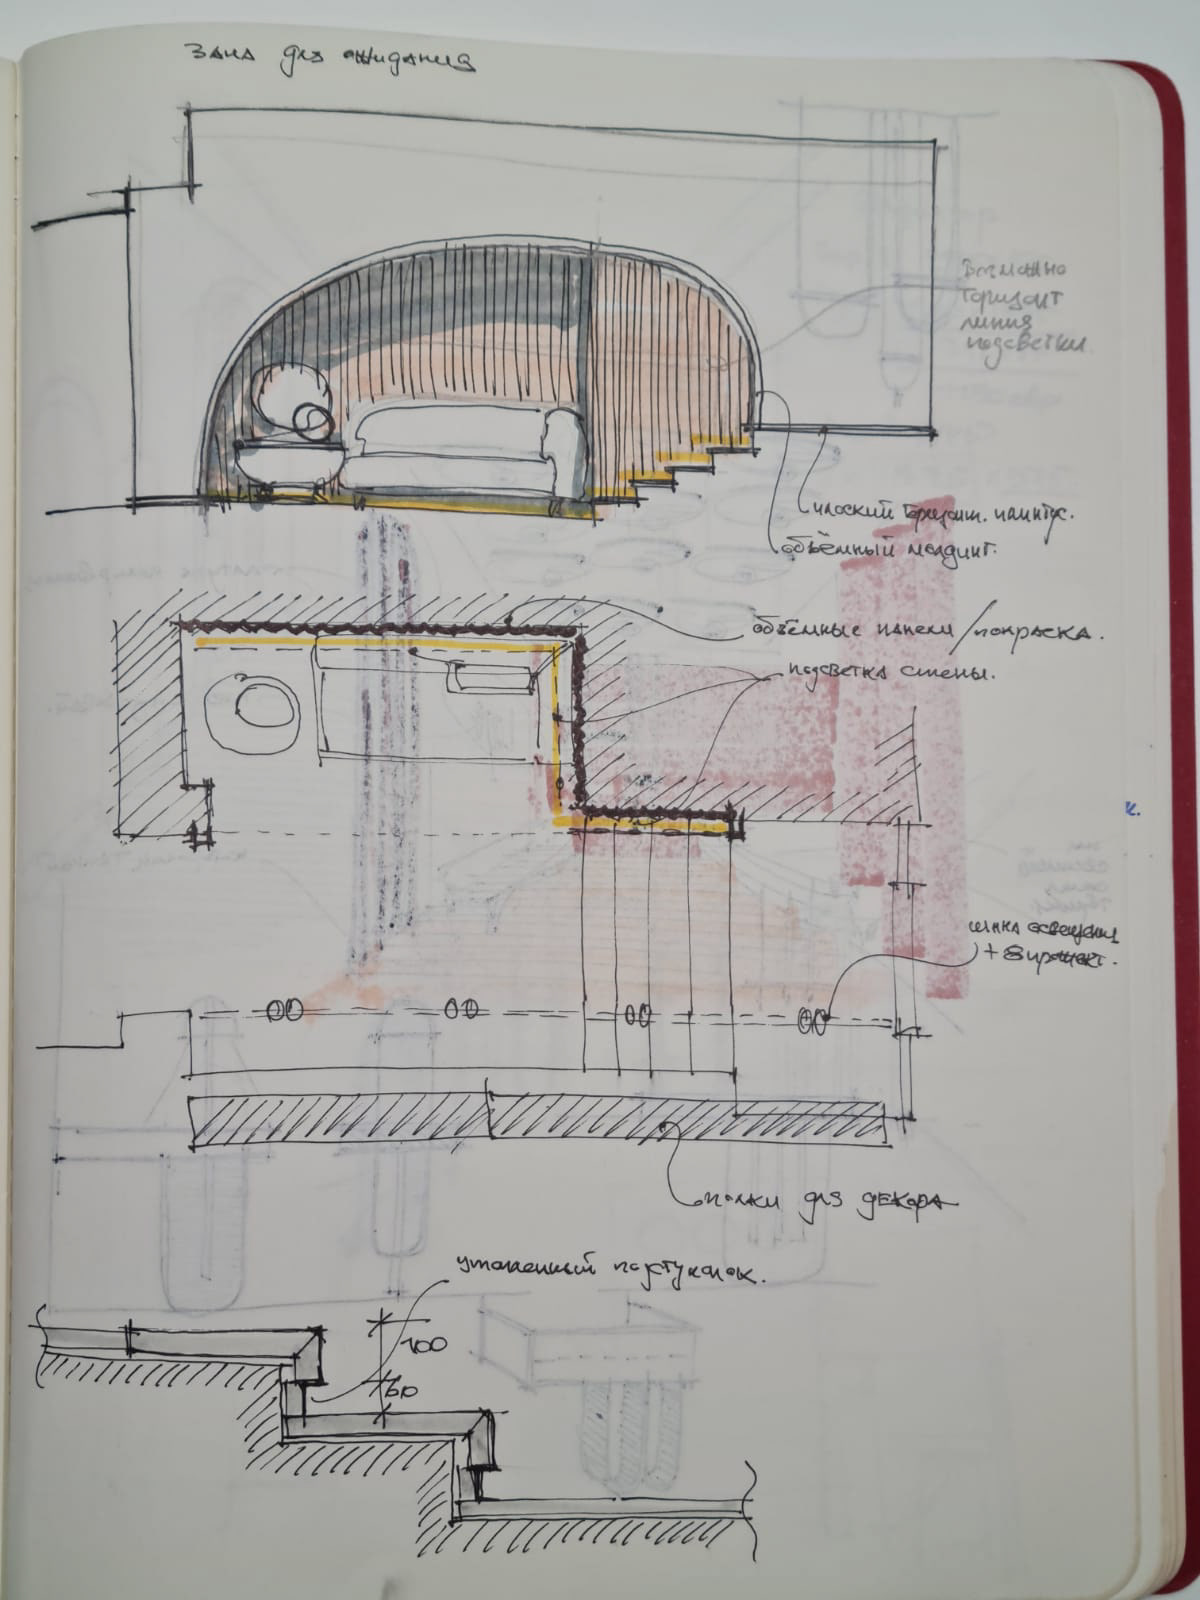 Зона для ожидания
Возможно
горизонт
линия
подсветки.
плоский горизонт. плинтус.
объёмный молдинг.
объёмные панели/покраска.
подсветка стены.
к.
шинка освещения
+ 8 прожект.
полки для декора
утопленный подступенок.
100
60